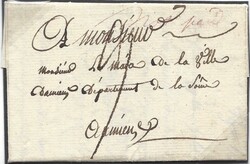 A monsieur
monsieur Le maire de la Ville
Damiens Département de la Somme
Damiens